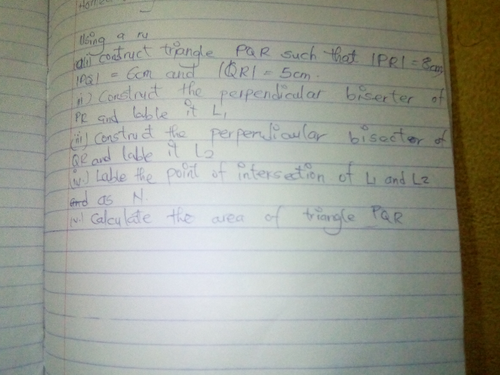 Using a ru
(i) construct triangle PQR such that |PR| = 8cm
|PQ| = 6cm and |QR| = 5cm.
ii) Construct the perpendicular biserter of
PR and lable it L1
(iii) Construct the perpendicular bisector of
QR and lable it L2
(iv.) Lable the point of intersection of L1 and L2
as N.
(v) Calculate the area of triangle PQR